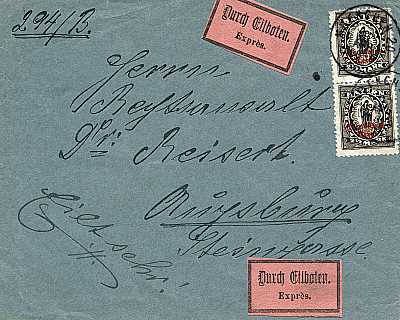 294/B.
Durch Eilboten.
Exprès.
Herrn
Rechtsanwalt
Dr: Reisert.
Augsburg
Steingasse.
Eilt sehr!
Durch Eilboten.
Exprès.